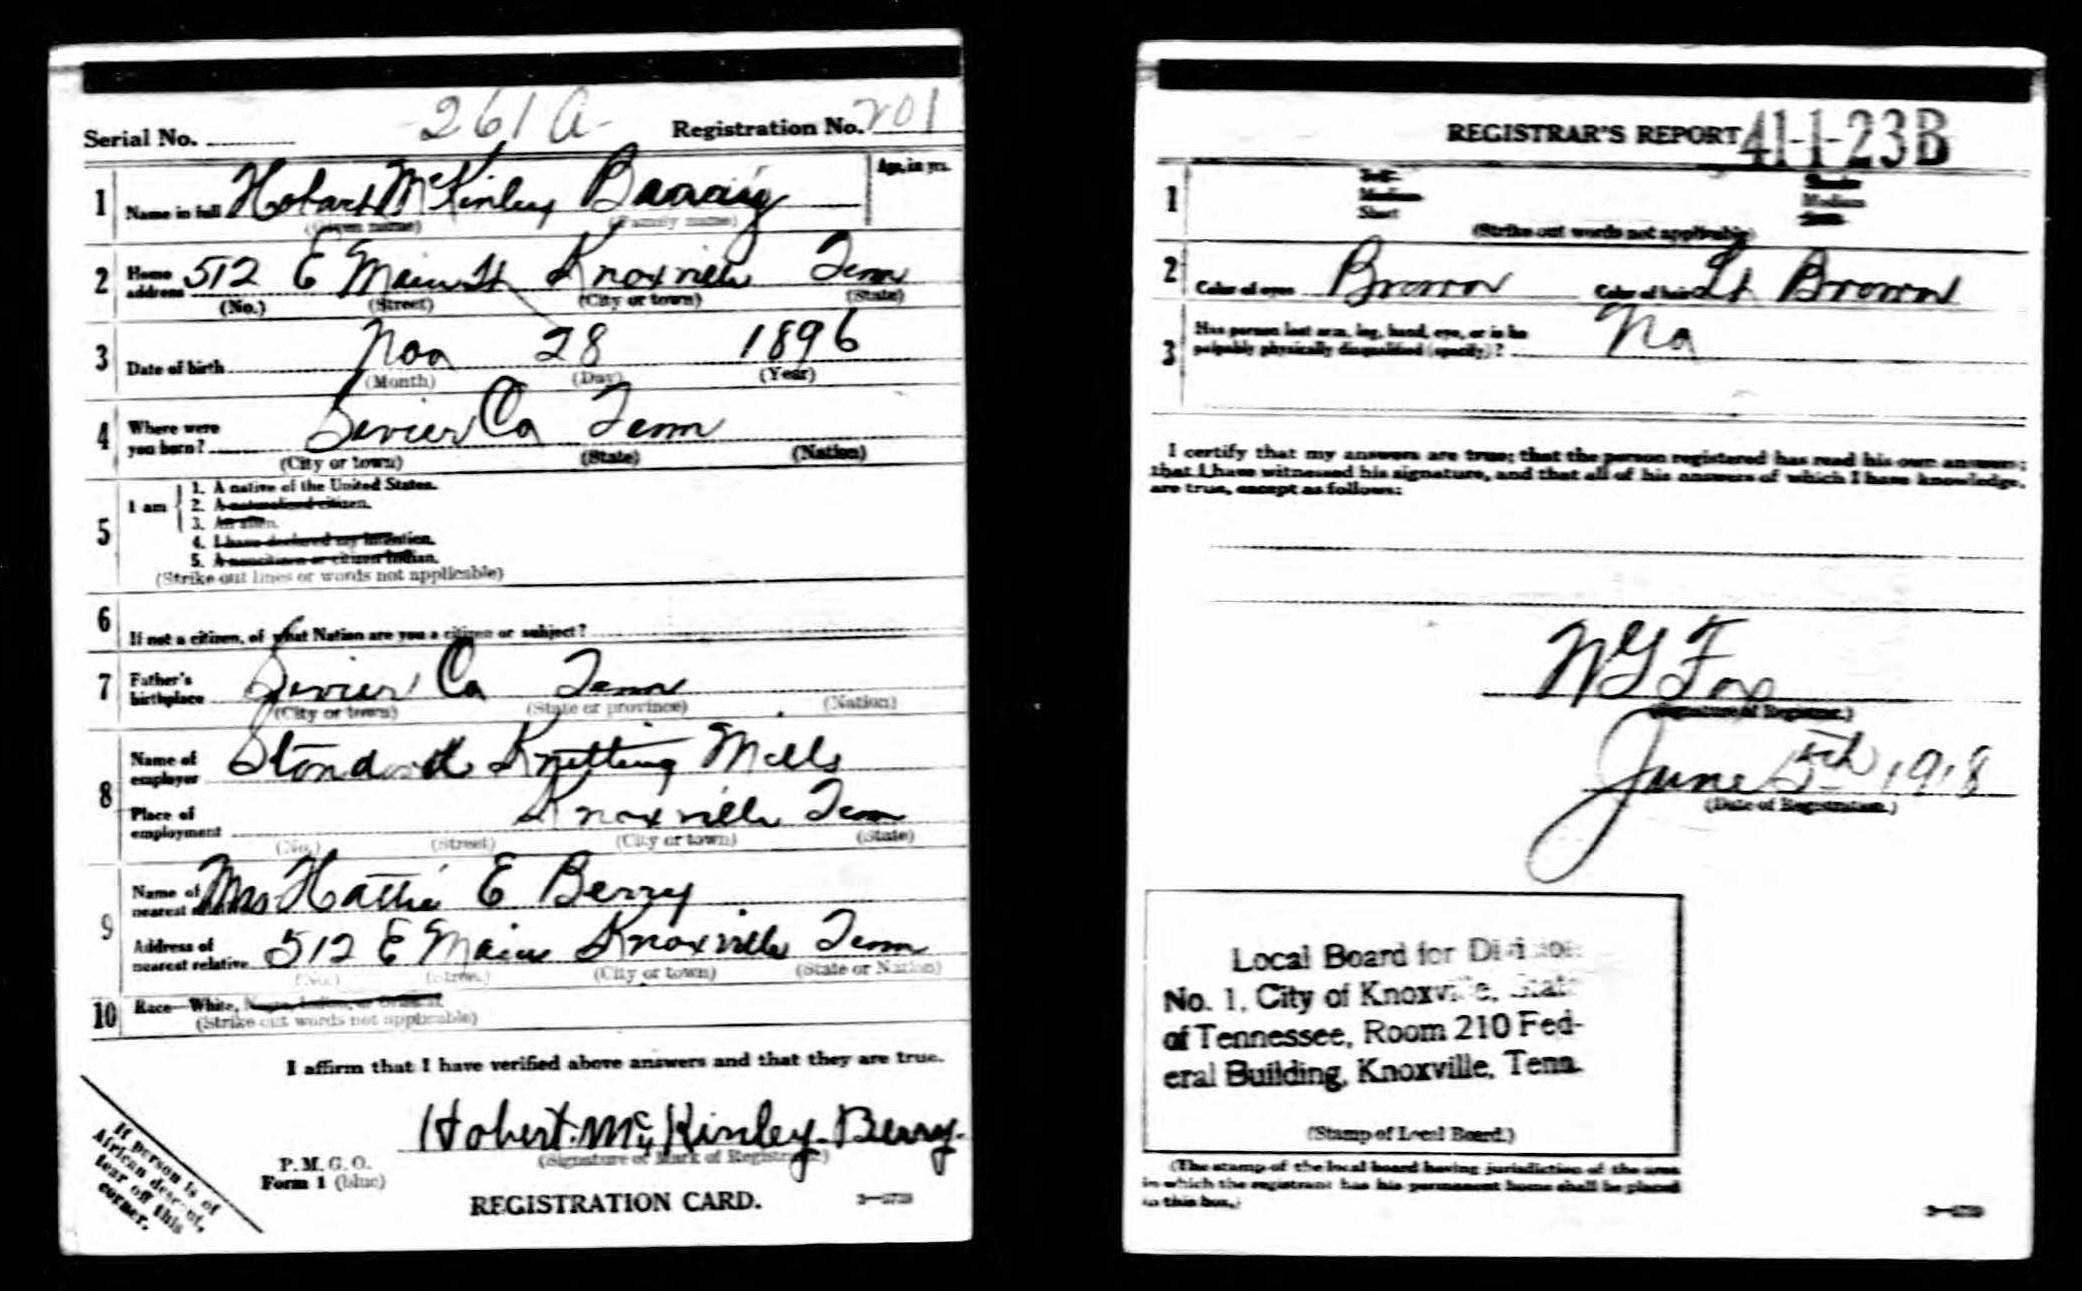 Serial No. 261 A- Registration No. 201
1 Name in full Hobart McKinley Age, in yrs.
(Given name) (Family name)
2 Home address 512 E Main St Knoxville Tenn
(No.) (Street) (City or town) (State)
3 Date of birth Nov 28 1896
(Month) (Day) (Year)
4 Where were you born? Sevier Co Tenn
(City or town) (State) (Nation)
5 I am
1. A native of the United States.
2. A naturalized citizen.
3. An alien.
4. I have declared my intention.
5. A noncitizen or citizen Indian.
(Strike out lines or words not applicable)
6 If not a citizen, of what Nation are you a citizen or subject?
7 Father's birthplace Sevier Co Tenn
(City or town) (State or province) (Nation)
8 Name of employer Standard Knitting Mills
Place of employment Knoxville Tenn
(No.) (Street) (City or town) (State)
9 Name of nearest Mrs Hattie E Berry
Address of nearest relative 512 E Main Knoxville Tenn
(No.) (Street) (City or town) (State or Nation)
10 Race—White, Negro, Indian, or Oriental
(Strike out words not applicable)
I affirm that I have verified above answers and that they are true.
Hobert. Mc Kinley. Berry.
(Signature or Mark of Registrant)
P. M. G. O.
Form 1 (blue)
REGISTRATION CARD.
If person is of
African descent,
tear off this
corner.
REGISTRAR'S REPORT 41-1-23B
1 Tall Medium Short Slender Medium Stout
(Strike out words not applicable)
2 Color of eyes Brown Color of hair Lt Brown
3 Has person lost arm, leg, hand, eye, or is he
palpably physically disqualified (specify)? No
I certify that my answers are true; that the person registered has read his own answers;
that I have witnessed his signature, and that all of his answers of which I have knowledge,
are true, except as follows:
W G Fox
(Signature of Registrar.)
June 5th 1918
(Date of Registration.)
Local Board for Division
No. 1, City of Knoxville, State
of Tennessee, Room 210 Fed-
eral Building, Knoxville, Tenn.
(Stamp of Local Board.)
(The stamp of the local board having jurisdiction of the area
in which the registrant has his permanent home shall be placed
in this box.)